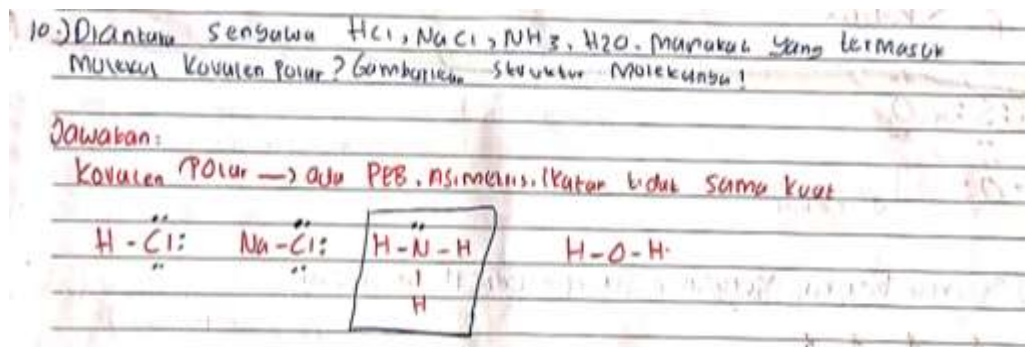 10.) Diantara senyawa HCl, NaCl, NH3, H2O. Manakah yang termasuk
Molekul Kovalen Polar? Gambarkan Struktur Molekulnya!
Jawaban:
Kovalen Polar —> ada PEB. Asimetris. Ikatan tidak sama kuat
H - Cl: Na - Cl: H - N - H H - O - H
|
H